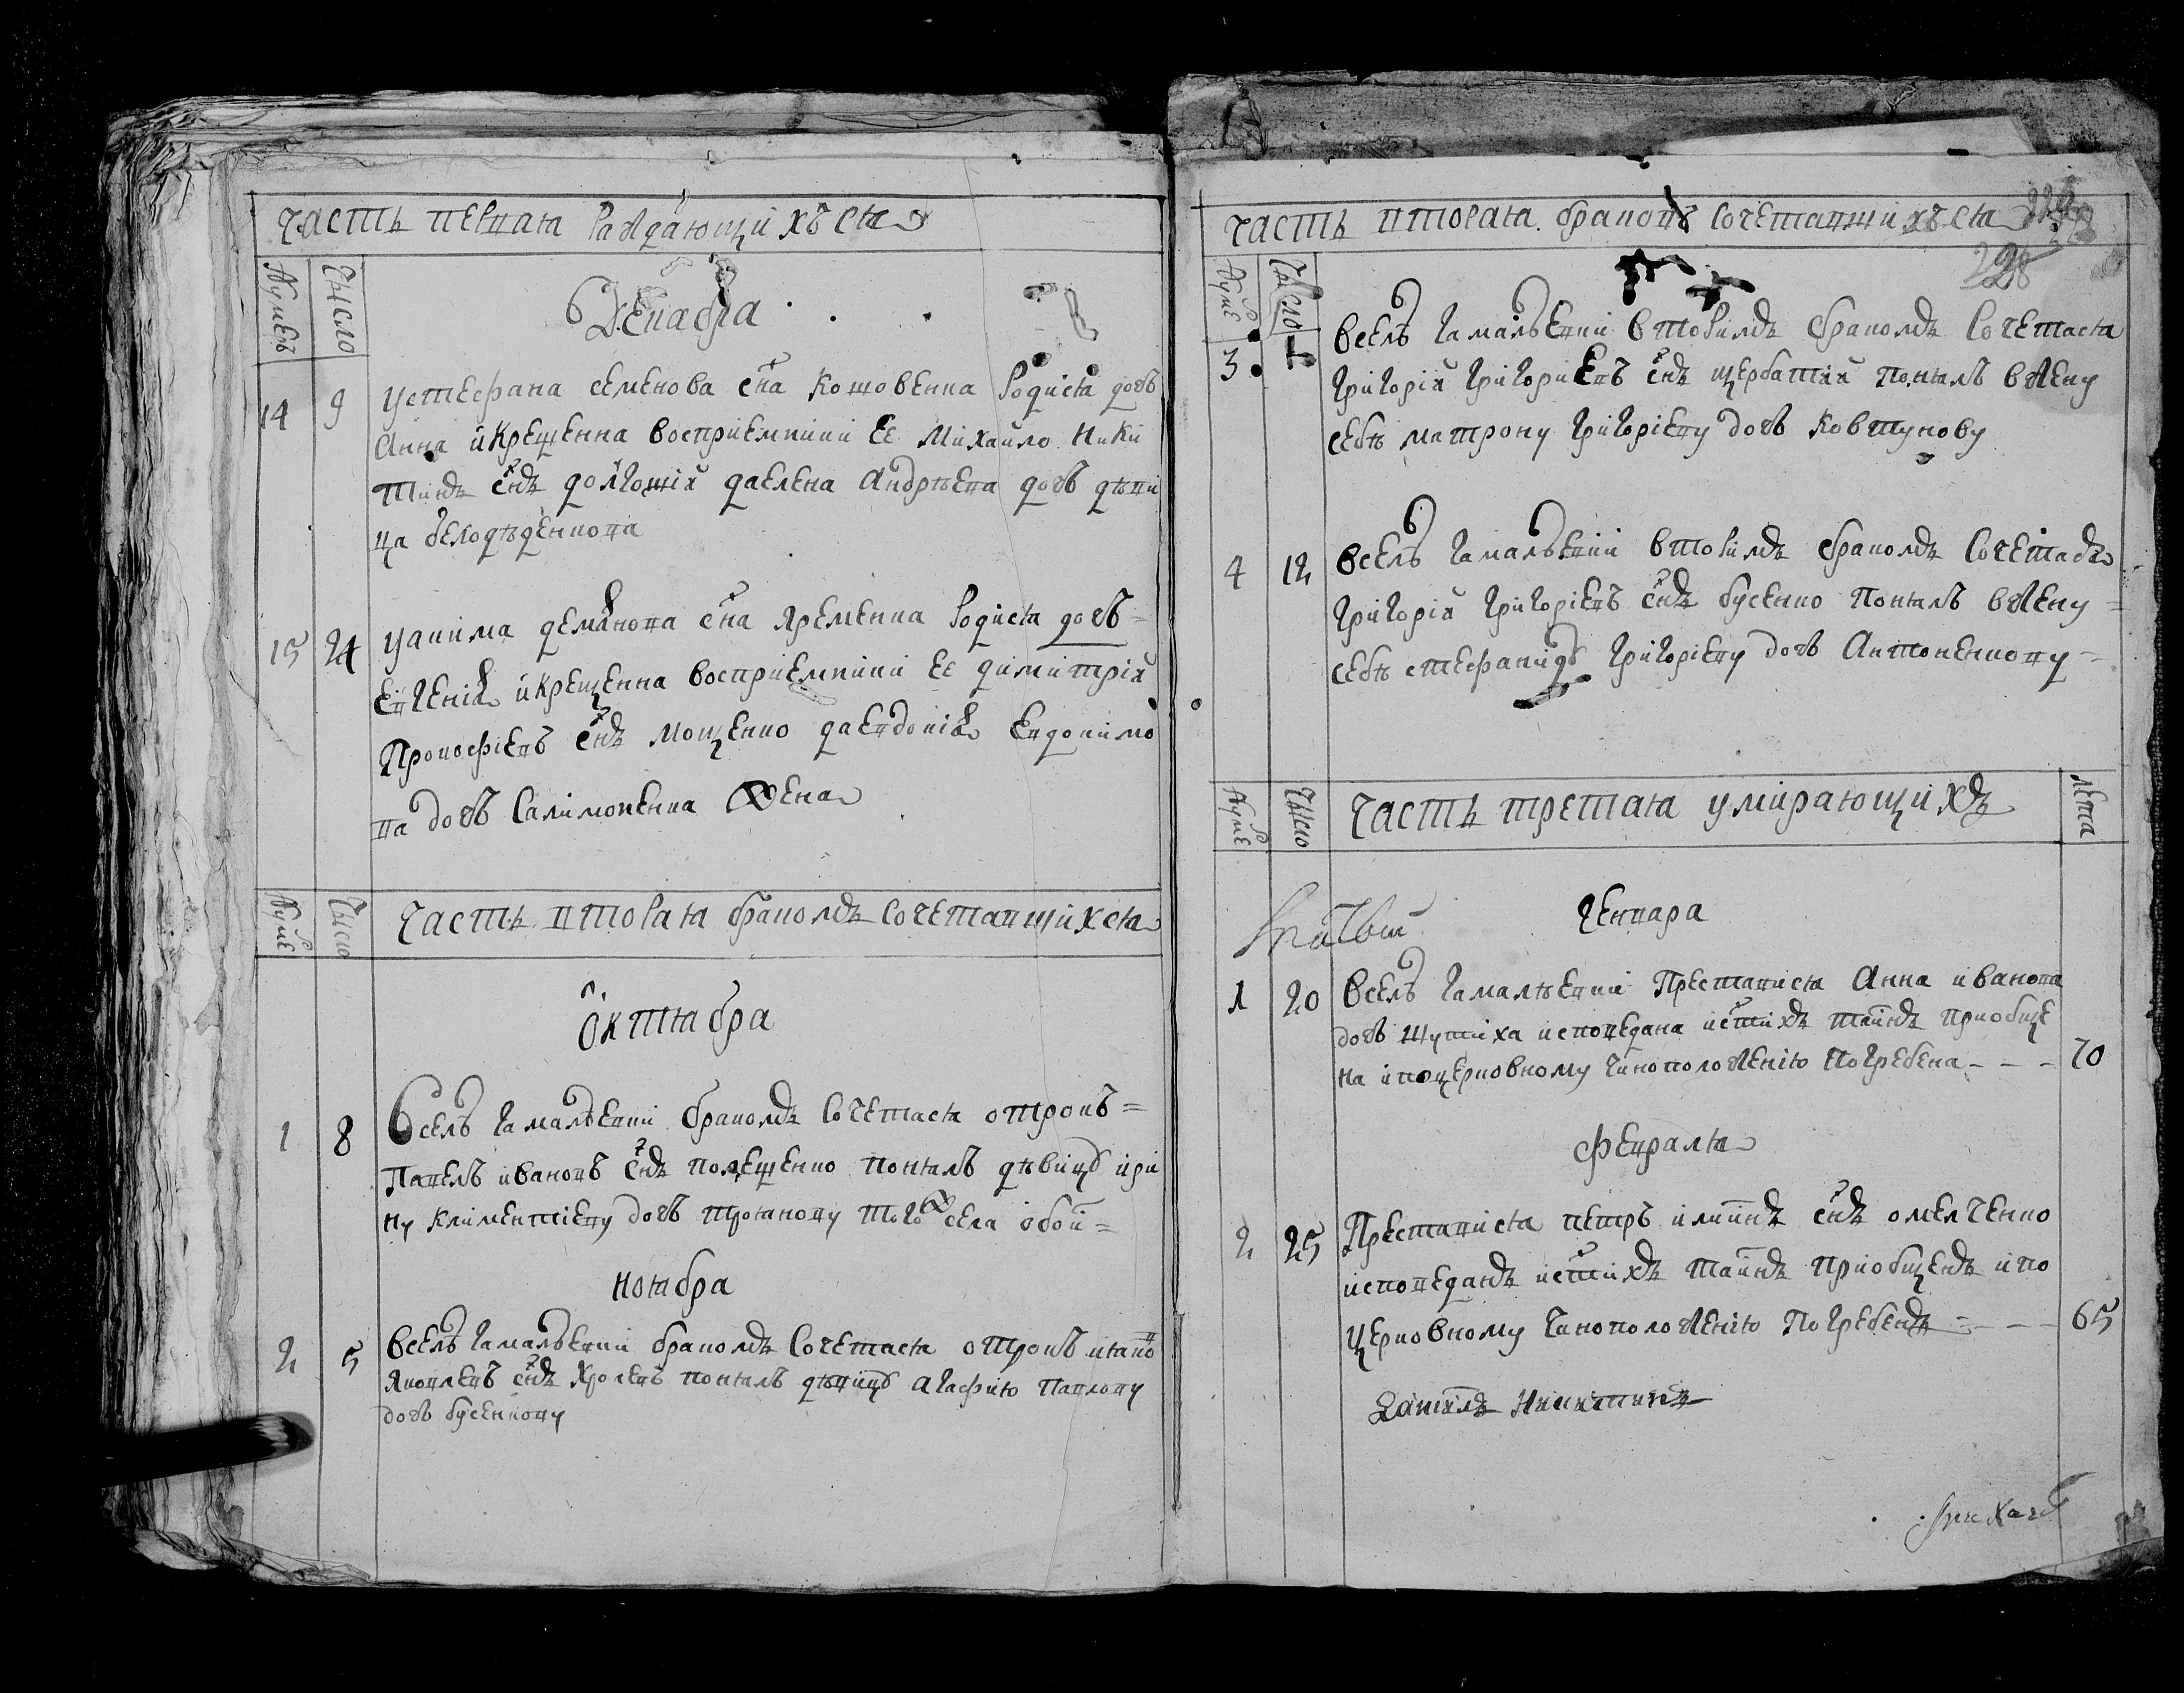 Часть первая раждающихъся
Нумеръ
Число
Декабра
14 9 У Стефана Семенова сна Кошовенка родися дочь
Анна и крещенна восприемники ее Михайло Ники
тинъ снъ Долгошій да Елена Андрѣева дочь дѣви
ца Белодѣденкова
15 24 У Акима Демянова сна Яременка родися дочь
Евгенія и крещенна восприемники ее Димитрій
Прокофіевъ снъ Мощенко да Евдокія Евдокимо
ва дочь Салимоненка жена
Нуме Число Часть вторая бракомъ сочетавшихся
Октября
1 8 В селѣ Гамалѣевки бракомъ сочетася отрокъ
Павелъ Ивановъ снъ понялъ дѣвицу Ири
ну Климентіеву дочь того ж села обои
Ноября
2 5 В селѣ Гамалѣевки бракомъ сочетася отрокъ Иаковъ
Яковлевъ снъ понялъ дѣвицу Агафию Павлову
дочь Бусенкову
Часть вторая браковъ сочетавшихъся
228
Нуме
Число
3 В селѣ Гамалѣевки вторимъ бракомъ сочетася
Григорій Григориевъ снъ Щербатій понялъ в жену
себѣ Матрону Григоріеву дочь Ковтунову
4 12 В селѣ Гамалѣевки вторимъ бракомъ сочетася
Григорій Григоріевъ снъ Бусенко понялъ в жену
себѣ Стефаниду Григоріеву дочь Антоненкову
Нуме Число Часть третая умирающихъ лета
Генвара
1 20 В селѣ Гамалѣевки преставися Анна Иванова
дочь Шутиха исповедана и стихъ таинъ приобще
на и по церковному чиноположенію погребена 70
Февраля
2 25 Преставися Петръ Илиинъ снъ Омелченко
исповеданъ и стихъ таинъ приобщенъ и по
церковному чиноположенію погребенъ 65
Никитинъ